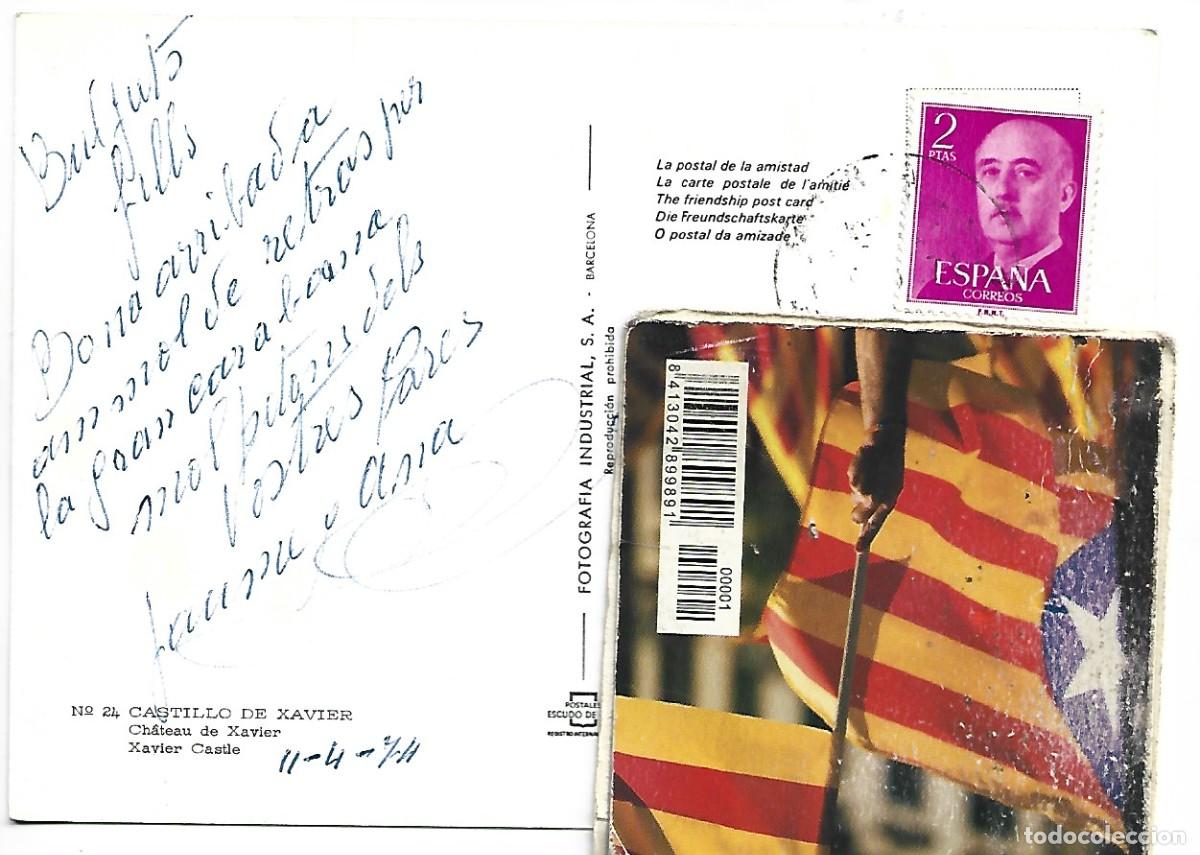 fills
Bona arribada
amb molt de retras per
la gran carabana
molt petons dels
vostres Pares
Jaume y Ana
Nº 24 CASTILLO DE XAVIER
Château de Xavier
Xavier Castle
11-4-74
FOTOGRAFIA INDUSTRIAL, S. A. - BARCELONA
Reproducción prohibida
POSTALES
ESCUDO DE
REGISTRO INTERNA
La postal de la amistad
La carte postale de l'amitié
The friendship post card
Die Freundschaftskarte
O postal da amizade
2
PTAS
ESPAÑA
CORREOS
F.N.M.T.
8 413042 899891
00001
todocoleccion